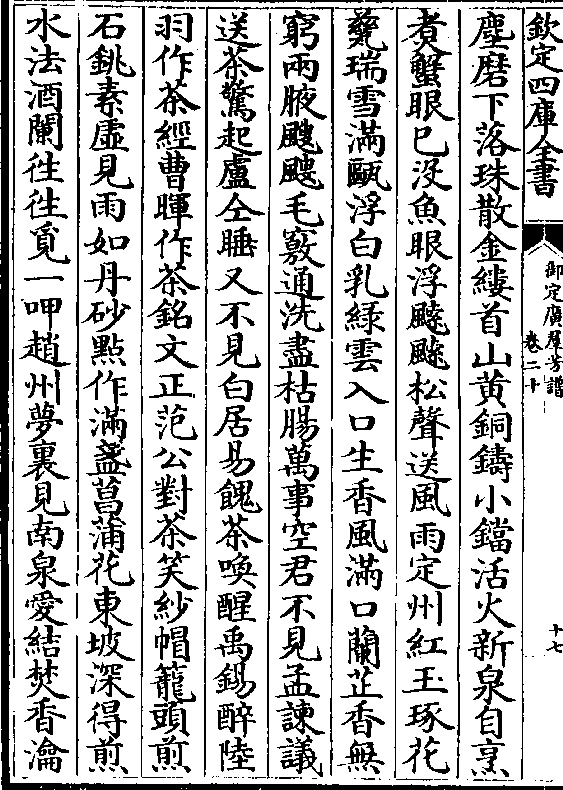 欽定四庫全書
御定廣羣芳譜
卷二十
十七
塵磨下落珠散金縷首山黄銅鑄小鐺活火新泉自烹
煑蟹眼已没魚眼浮飕飕松聲送風雨定州紅玉琢花
甆瑞雪滿甌浮白乳緑雲入口生香風滿口蘭芷香無
窮兩腋颼颼毛竅通洗盡枯腸萬事空君不見孟諫議
送茶驚起盧仝睡又不見白居易餽茶喚醒禹錫醉陸
羽作茶經曹暉作茶銘文正范公對茶笑紗帽籠頭煎
石銚素虛見雨如丹砂點作滿盞菖蒲花東坡深得煎
水法酒闌徃徃覓一呷趙州夢裏見南泉愛結焚香瀹